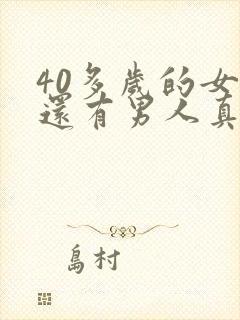 40多歲的女
還有男人真
島村